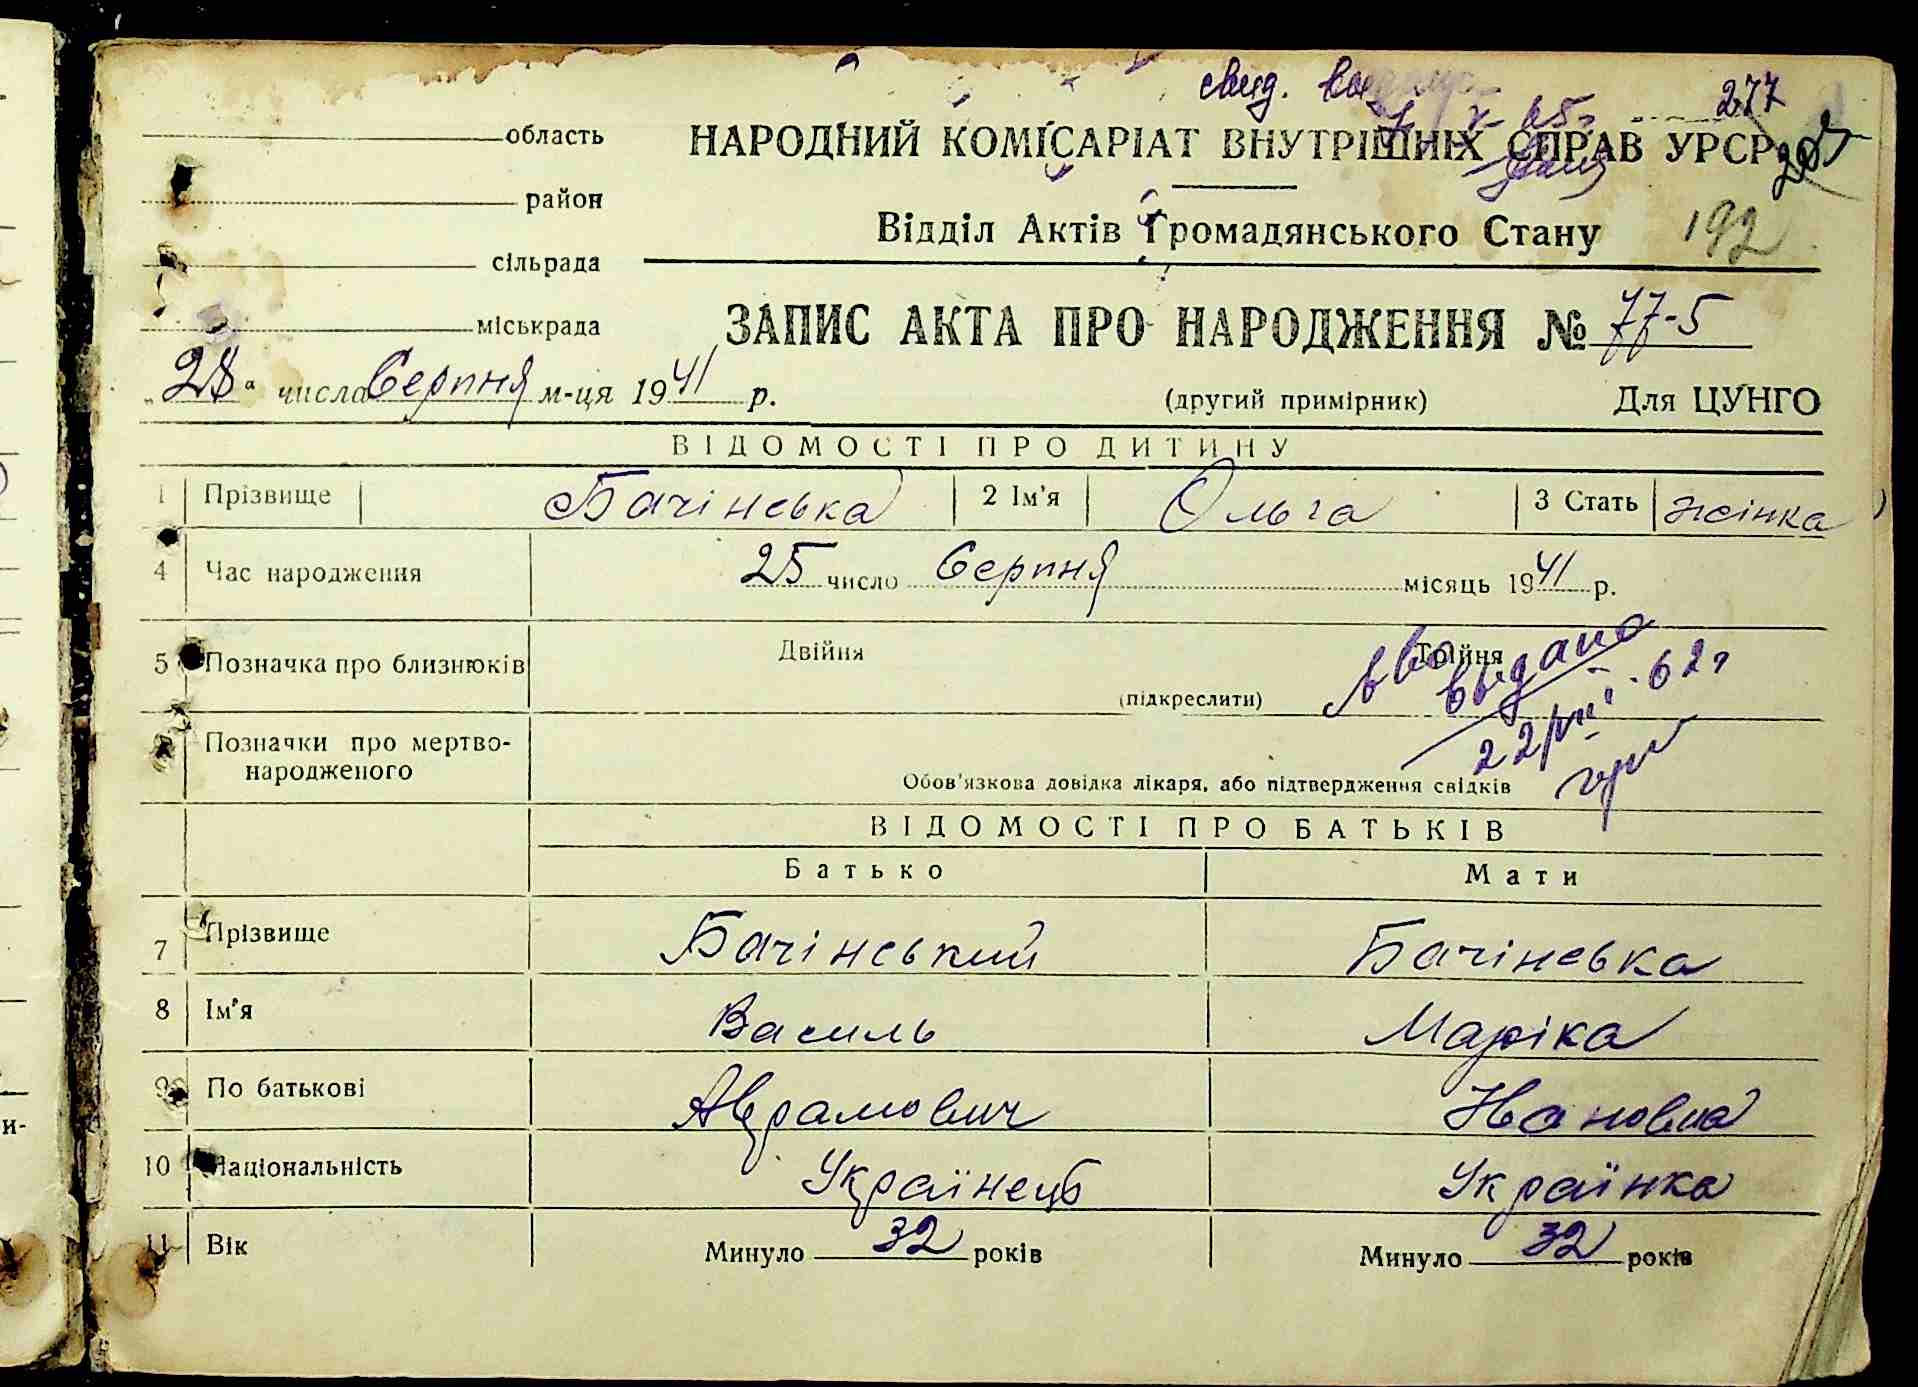 свид.
277
область
НАРОДНИЙ КОМІСАРІАТ ВНУТРІШНІХ СПРАВ УРСР
район
Відділ Актів Громадянського Стану 192
сільрада
міськрада
ЗАПИС АКТА ПРО НАРОДЖЕННЯ № 77-5
„28“ числа Серпня м-ця 1941 р.
(другий примірник) Для ЦУНГО
ВІДОМОСТІ ПРО ДИТИНУ
1 Прізвище Бачінська 2 Ім'я Ольга 3 Стать жінка
4 Час народження 25 число Серпня місяць 1941 р.
5 Позначка про близнюків Двійня Трійня
(підкреслити)
выдано
22 62г
Позначки про мертво-
народженого
Обов'язкова довідка лікаря, або підтвердження свідків
ВІДОМОСТІ ПРО БАТЬКІВ
Батько Мати
7 Прізвище Бачінський Бачінська
8 Ім'я Василь Маріка
9 По батькові Аврамович Івановна
10 Національність Українець Українка
11 Вік Минуло 32 років Минуло 32 років
и-